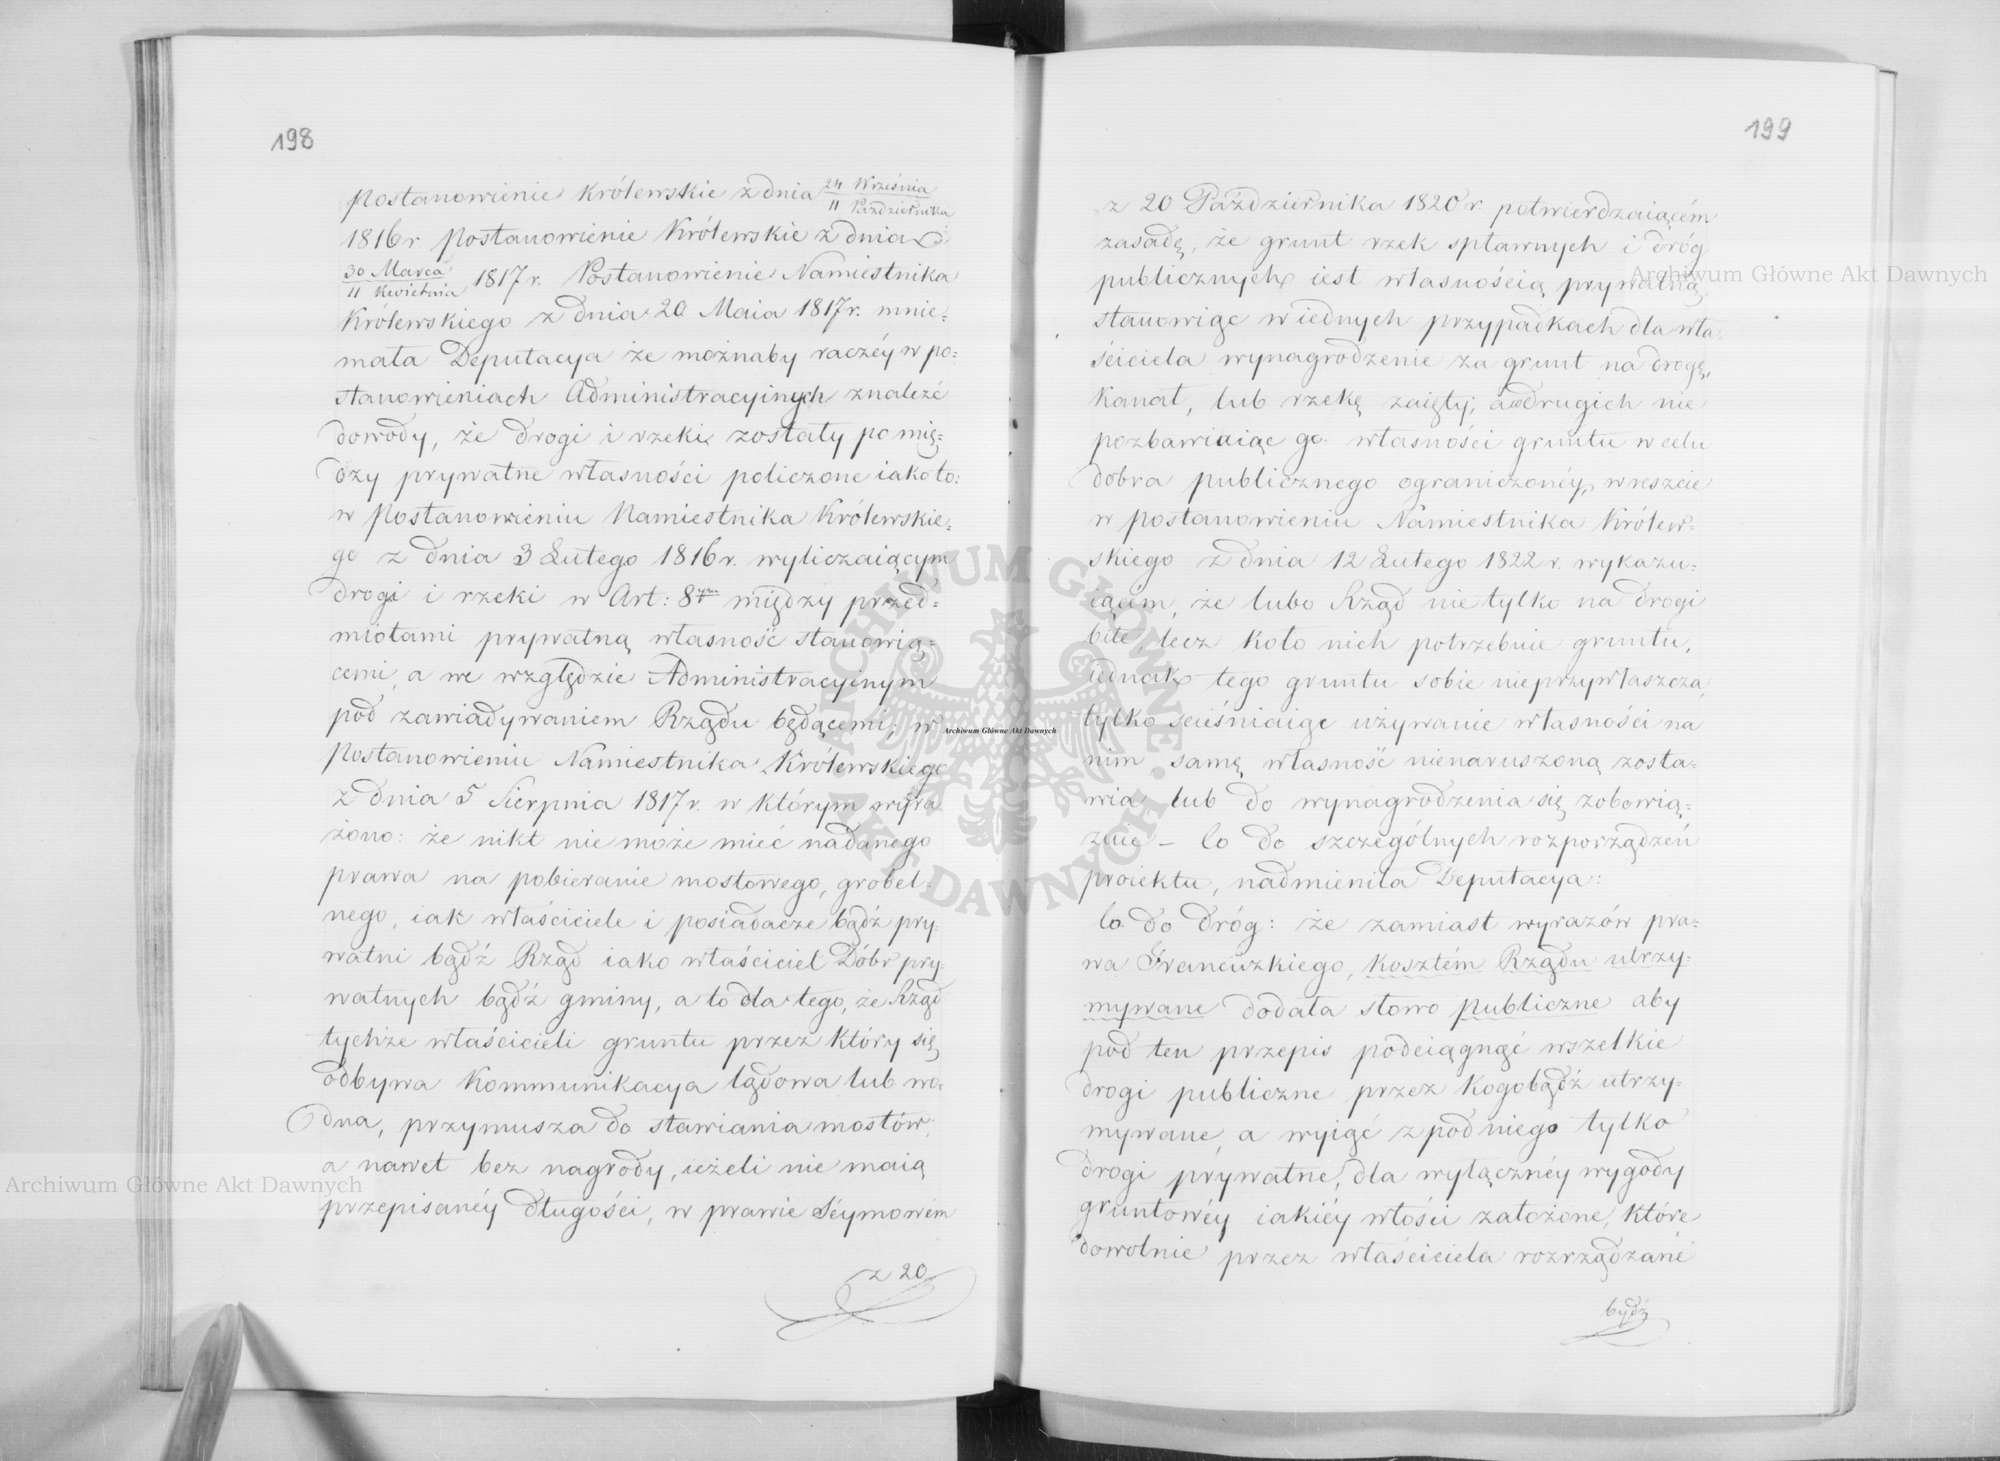 198
Postanowienie Królewskie z dnia 24 Września / 11 Października
1816 r. Postanowienie Królewskie z dnia
30 Marca / 11 Kwietnia 1817 r. Postanowienie Namiestnika
Królewskiego z dnia 20 Maia 1817 r. mnie=
mała Deputacya że możnaby raczéy w po=
stanowieniach Administracyinych znaleźć
dowody, że drogi i rzeki zostały pomię=
dzy prywatne własności policzone iako to:
w Postanowieniu Namiestnika Królewskie=
go z dnia 3 Lutego 1816 r. wyliczaiącym
drogi i rzeki w Art: 8ym między przed=
miotami prywatną własność stanowią=
cemi, a we względzie Administracyinym
pod zawiadywaniem Rządu będącemi; w
Postanowieniu Namiestnika Królewskiego
z dnia 5 Sierpnia 1817 r. w którym wyra
żono: że nikt nie może mieć nadanego
prawa na pobieranie mostowego, grobel=
nego, iak właściciele i posiadacze bądź pry=
watni bądź Rząd iako właściciel Dóbr pry=
watnych bądź gminy, a to dla tego, że Rząd
tychże właścicieli gruntu przez który się
odbywa Kommunikacya lądowa lub wo=
dna, przymusza do stawiania mostów,
a nawet bez nagrody, ieżeli nie maią
przepisanéy długości, w prawie Séymowém
z 20
199
z 20 Października 1820 r. potwierdzaiącém
zasadę, że grunt rzek spławnych i dróg
publicznych iest własnością prywatną,
stanowiąc w iednych przypadkach dla wła=
ściciela wynagrodzenie za grunt na drogę,
Kanał, lub rzekę zaięty; a w drugich nie
pozbawiaiąc go własności gruntu w celu
dobra publicznego ograniczonéy, wreszcie
w postanowieniu Namiestnika Królew=
skiego z dnia 12 Lutego 1822 r. wykazu=
iącém, że lubo Rząd nie tylko na drogi
bite, lecz koło nich potrzebuie gruntu,
iednak tego gruntu sobie nieprzywłaszcza,
tylko ścieśniaiąc używanie własności na
nim samę własność nienaruszoną zosta=
wia lub do wynagrodzenia się zobowią=
zuie – Co do szczególnych rozporządzeń
proiektu, nadmieniła Deputacya:
Co do dróg: że zamiast wyrazów pra=
wa Francuzkiego, Kosztém Rządu utrzy=
mywane dodała słowo publiczne aby
pod ten przepis podciągnąć wszelkie
drogi publiczne przez kogobądź utrzy=
mywane, a wyiąć z pod niego tylko
drogi prywatne, dla wyłącznéy wygody
gruntowéy iakiéy włości założone, które
dowolnie przez właściciela rozrządzane
bydź
Archiwum Główne Akt Dawnych
Archiwum Główne Akt Dawnych
Archiwum Główne Akt Dawnych
ARCHIWUM GŁÓWNE AKT DAWNYCH